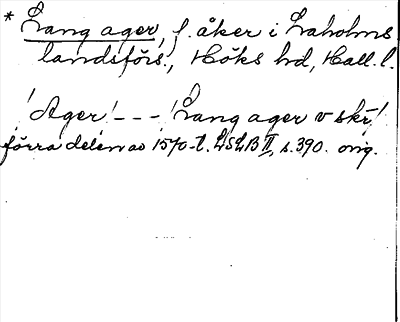 * Lang ager, f. åker i Laholms
landsförs., Höks hd, Hall. l.
'Ager' - - - 'Lang ager v skr'
förra delen av 1570-t. LSLB II, s. 390. orig.